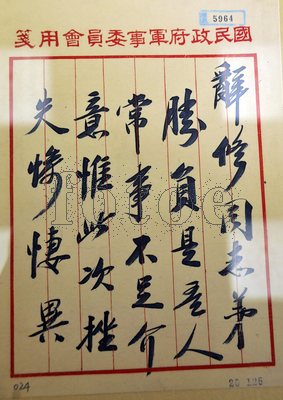 5964
國民政府軍事委員會用箋
辭修同志弟
勝負是吾人
常事不足介
意惟此次挫
失慘悽異
024
fotoe